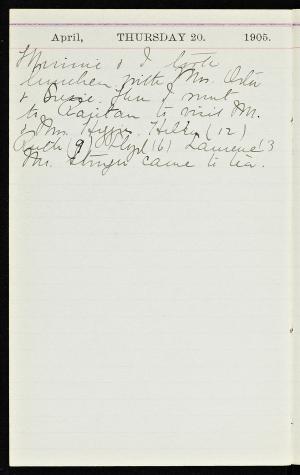 April, THURSDAY 20. 1905.
Minnie & I took
luncheon with Mrs. Osta
& Susie. Then I went
to Capitan to visit Mr.
& Mrs. . (12)
Ruth (9) Floyd (6) Laurene 3
Mr. came to tea.